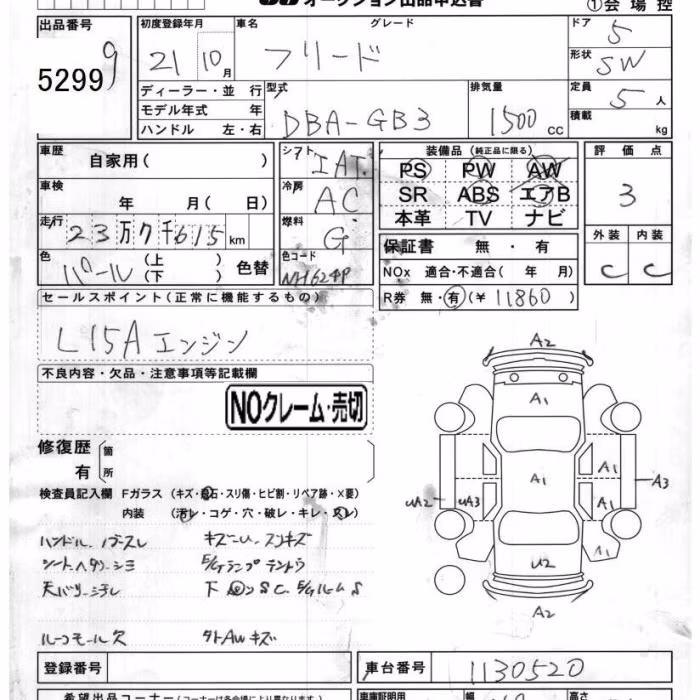 オークション出品申込書
①会場控
出品番号 初度登録年月 車名 グレード ドア 5
52999 21 10月 フリード 形状 SW
ディーラー・並行 型式 排気量 定員 5人
モデル年式 年 DBA-GB3 1500cc 積載 kg
ハンドル 左・右
車歴 自家用( ) シフト IAT 装備品(純正品に限る) 評価点
PS PW AW 3
車検 年 月( 日) 冷房 AC SR ABS エアB
本革 TV ナビ 外装 内装
走行 23万7千615km 燃料 G 保証書 無・有 C C
色 パール (上)(下) 色替 色コード NH624P NOx 適合・不適合( 年 月)
R券 無・有(¥ 11860)
セールスポイント(正常に機能するもの)
L15Aエンジン
不良内容・欠品・注意事項等記載欄
NOクレーム・売切
修復歴 有 箇所
検査員記入欄 Fガラス(キズ・飛石・スリ傷・ヒビ割・リペア跡・X要)
内装 (汚レ・コゲ・穴・破レ・キレ・スレ)
A2
A1
A1 A1
uA2 uA3 A1 A3
A1
U2
A2
ハンドル、ノブスレ キズ
シートヘタリ・シミ
ルーフモール欠 タトAWキズ
登録番号 車台番号 1130520
希望出品コーナー(コーナーは各会場により異なります) 車庫証明用 幅 高さ